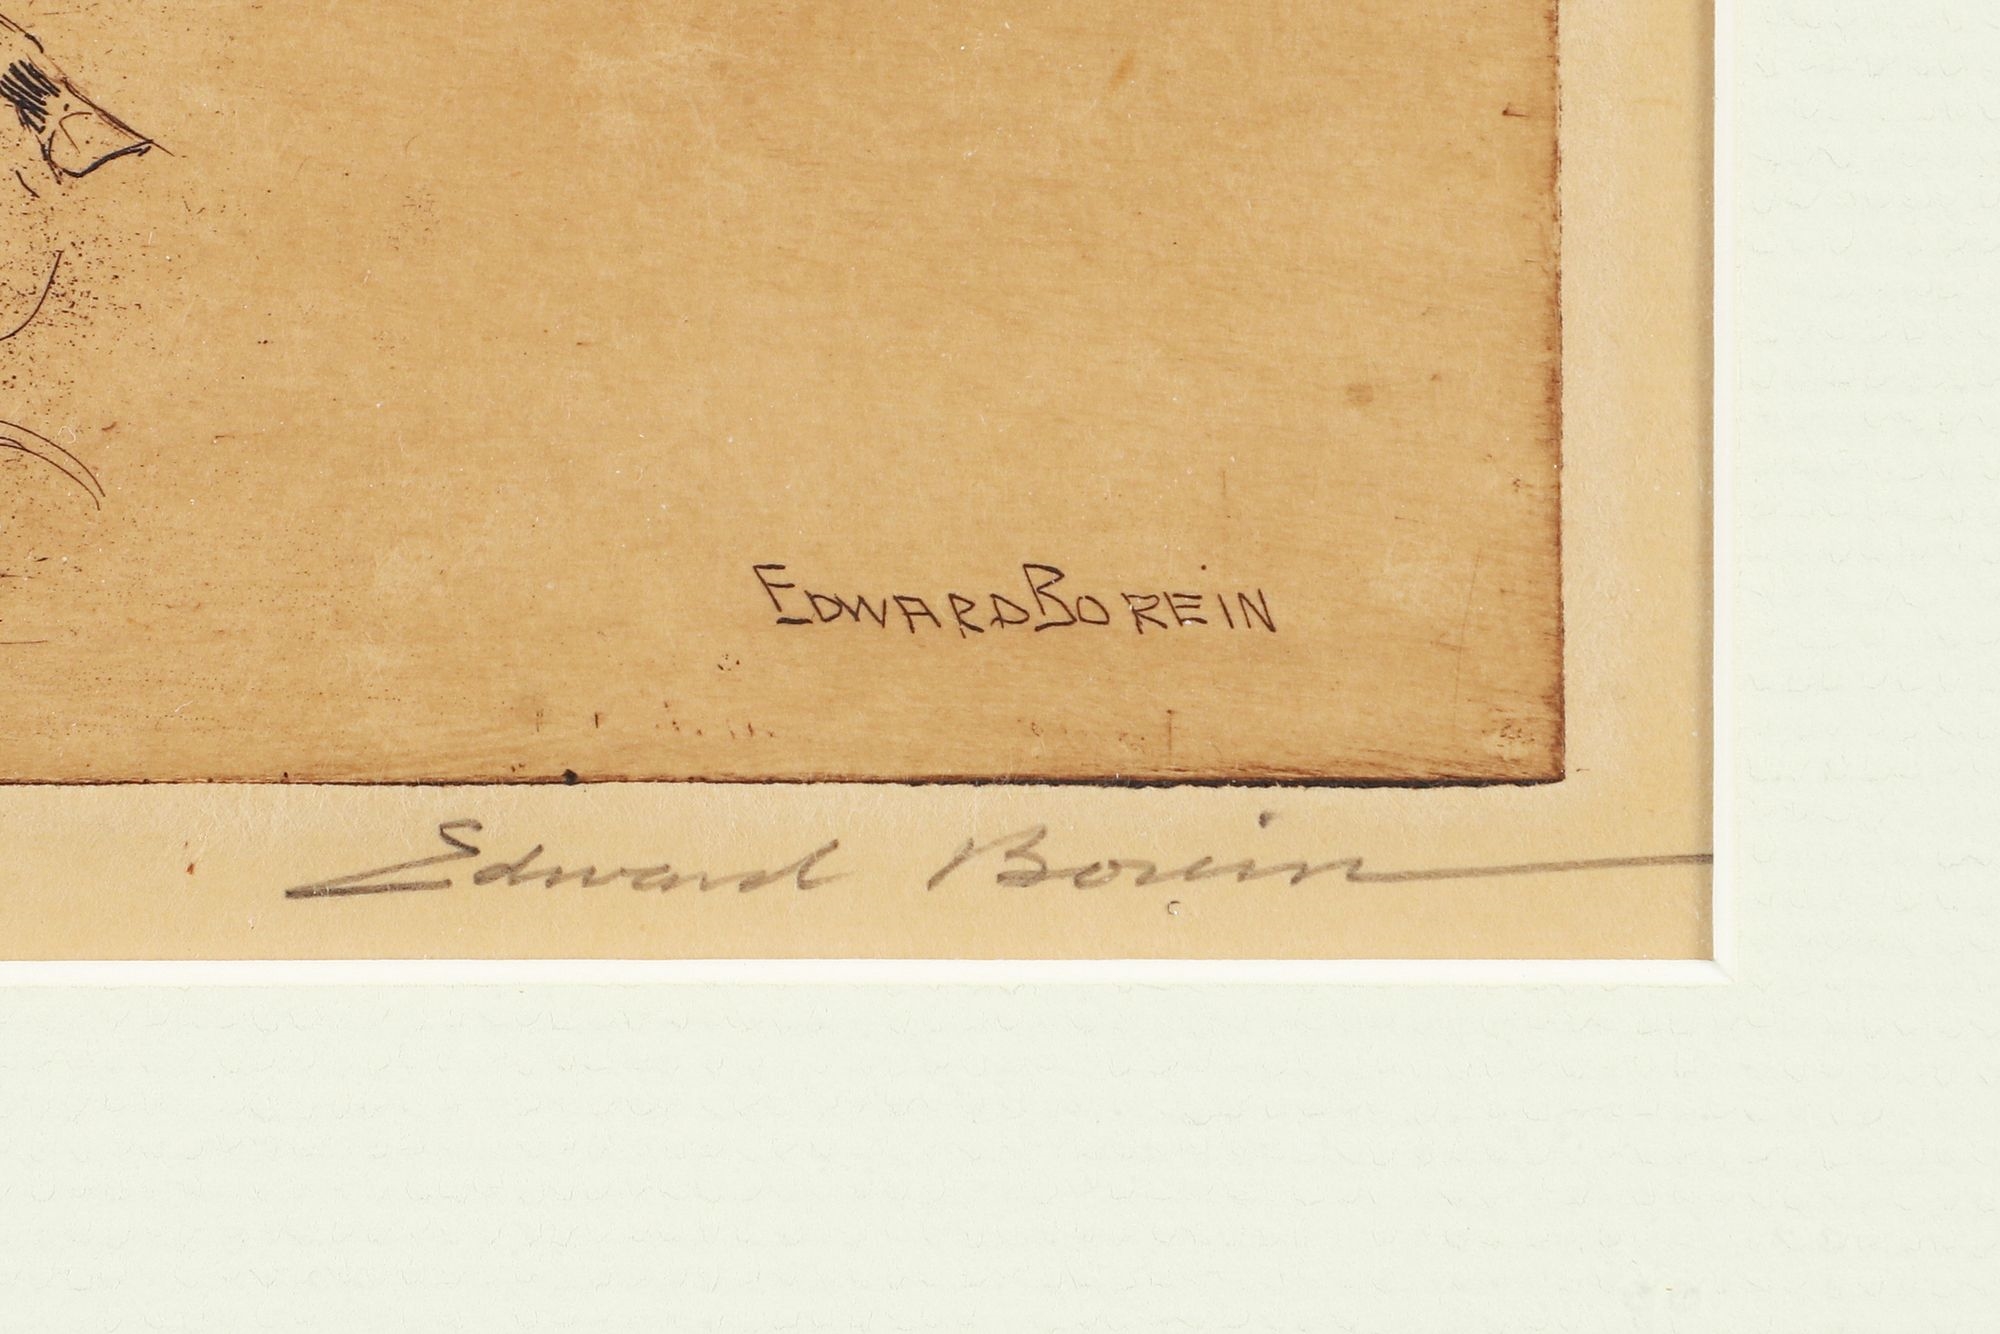 EDWARD BOREIN
Edward Borein